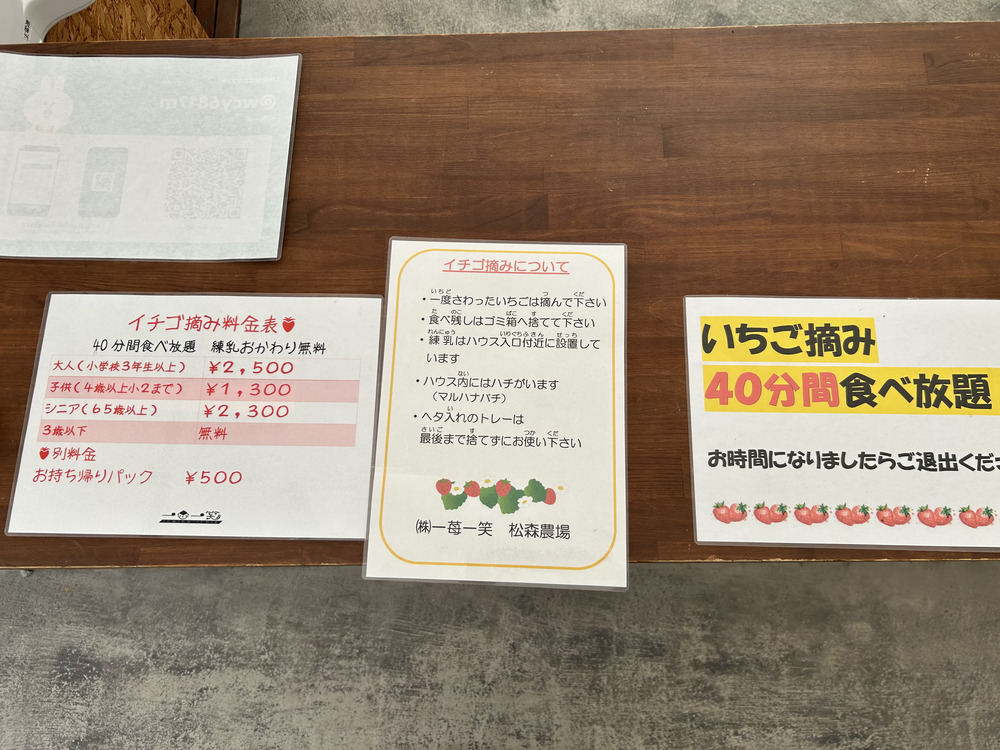 @wcy6817m
イチゴ摘み料金表
40分間食べ放題 練乳おかわり無料
大人(小学校3年生以上) ¥2,500
子供(4歳以上小2まで) ¥1,300
シニア(65歳以上) ¥2,300
3歳以下 無料
別料金
お持ち帰りパック ¥500
一苺一笑
イチゴ摘みについて
・一度さわったいちごは摘んで下さい
・食べ残しはゴミ箱へ捨てて下さい
・練乳はハウス入口付近に設置して
います
・ハウス内にはハチがいます
(マルハナバチ)
・ヘタ入れのトレーは
最後まで捨てずにお使い下さい
㈱一苺一笑 松森農場
いちご摘み
40分間食べ放題
お時間になりましたらご退出くださ